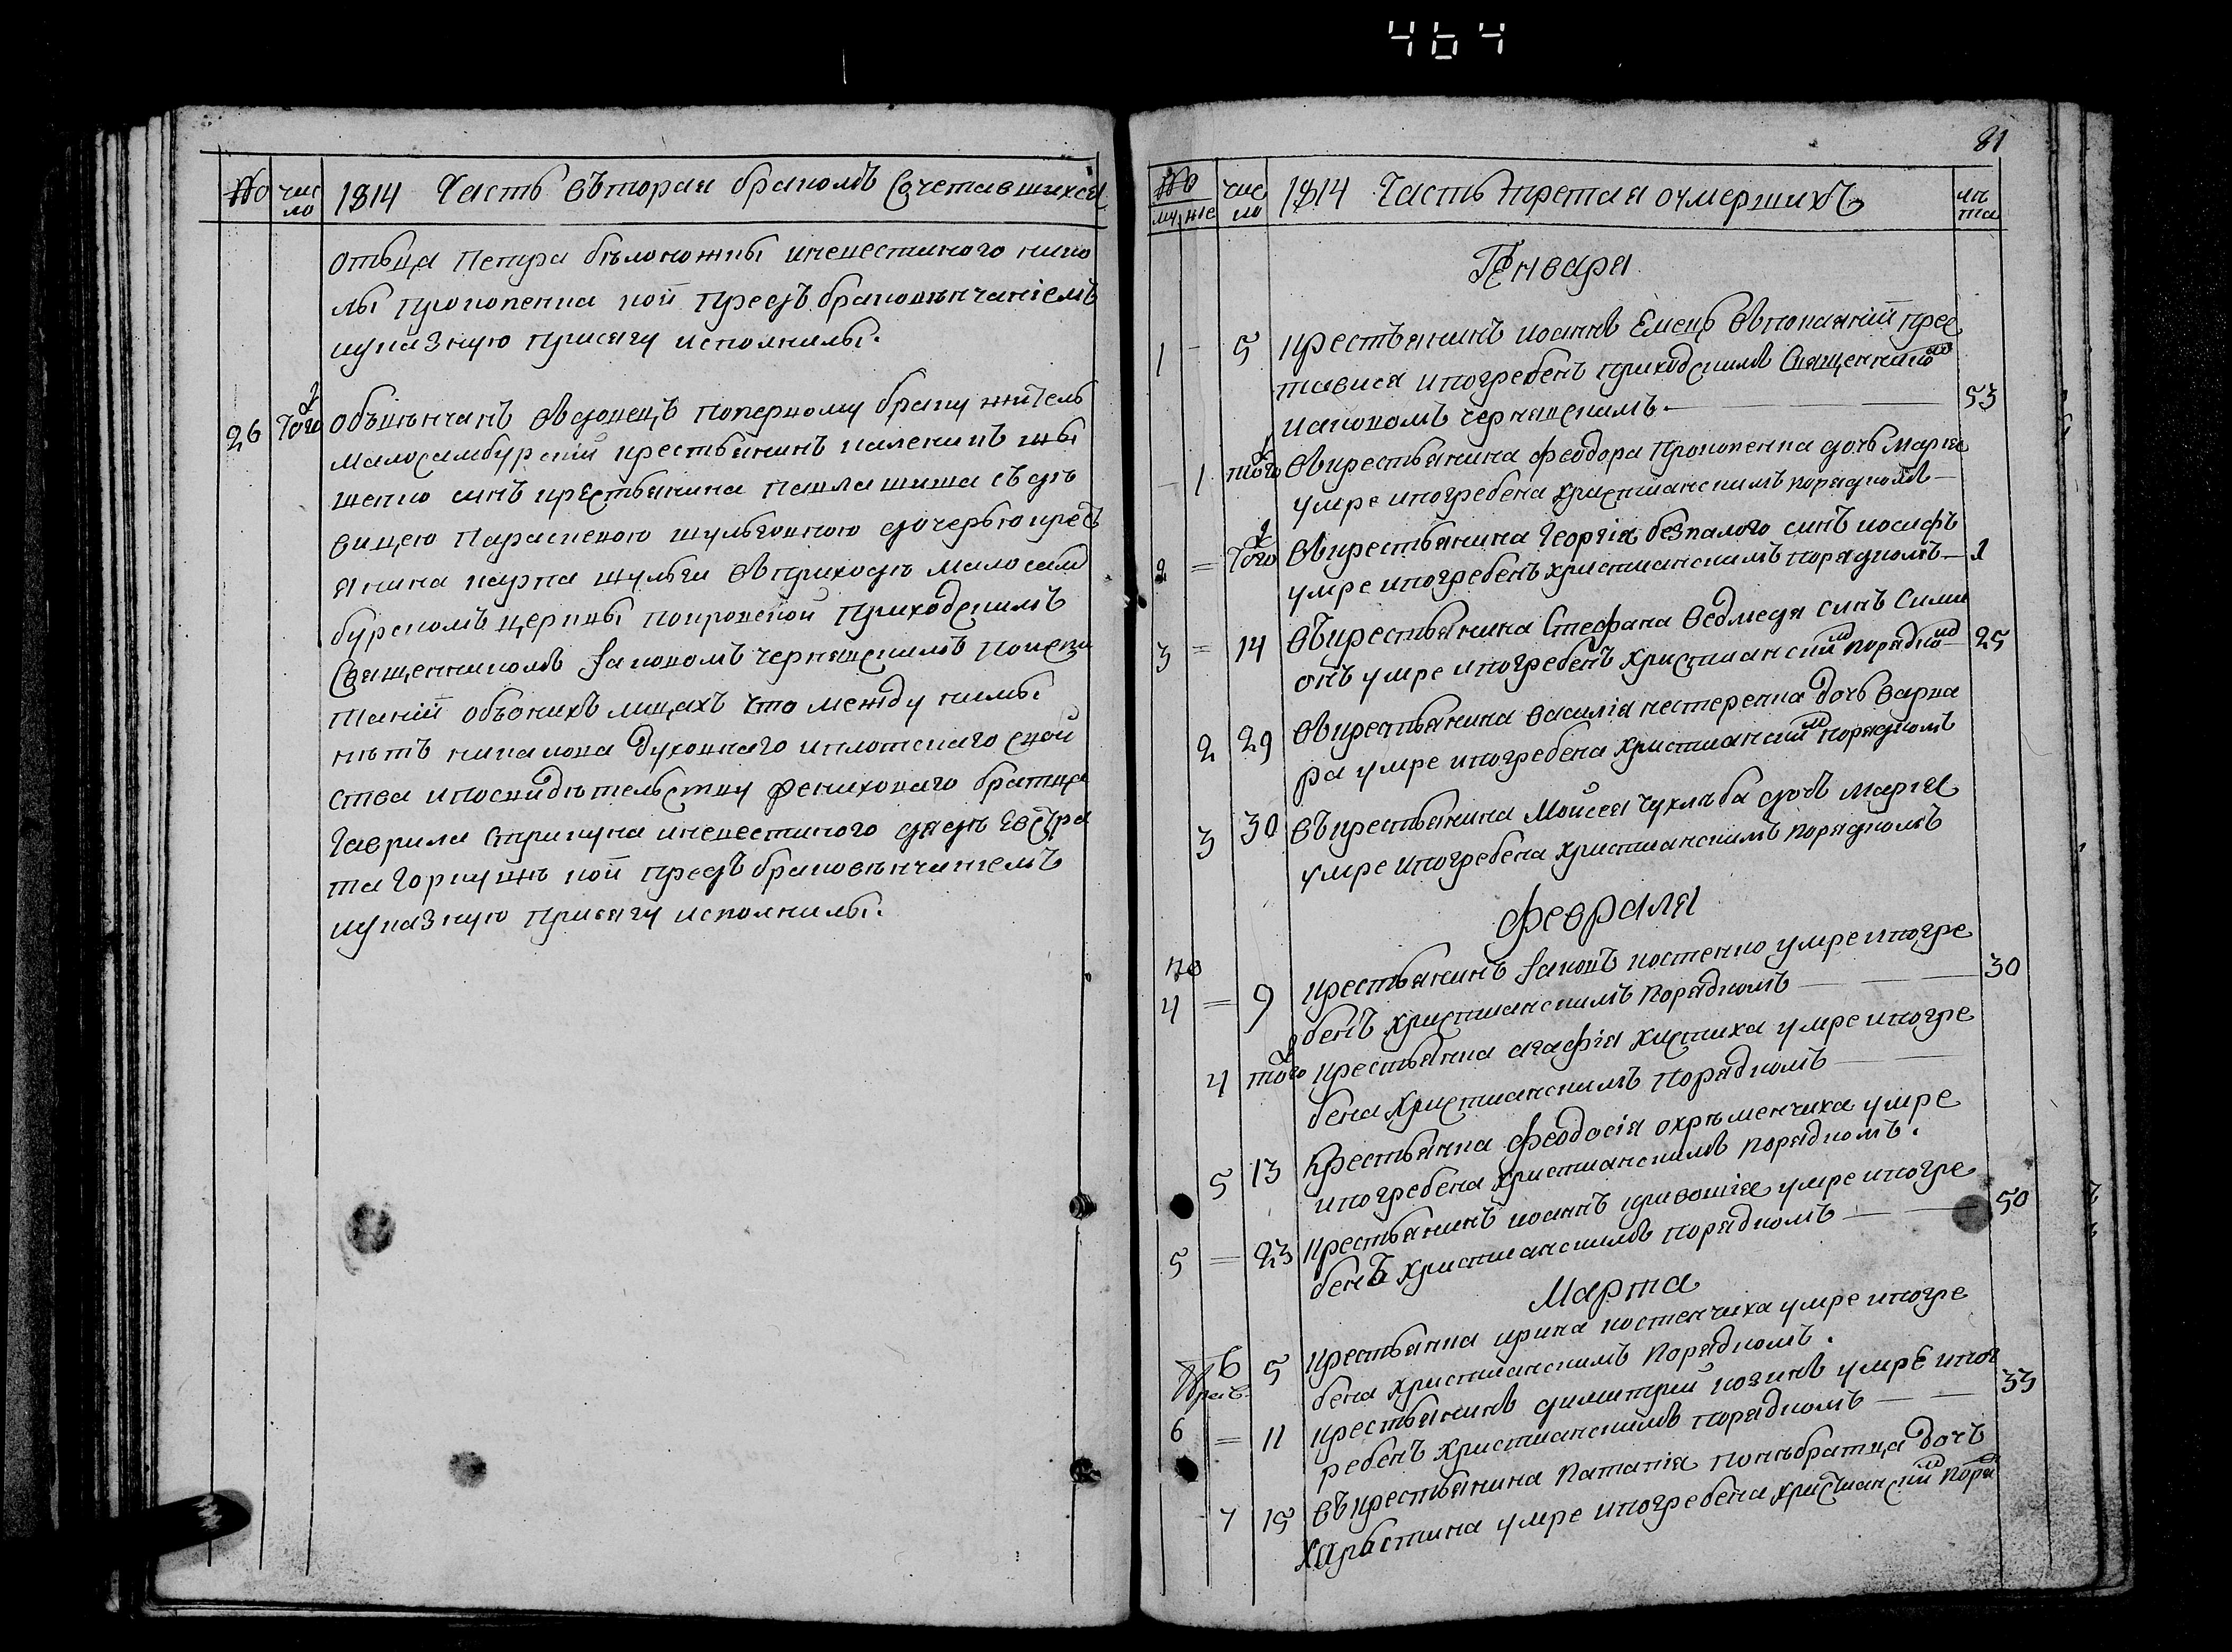 464
№ чис
ло 1814 Часть вътория бракомъ Сочетавшихся
отьца Петра бѣлоножкы иневестиного нико
лы прокопенка кои предъ браковѣнчаніемъ
куказную присягу исполнилы.
26 Того обвѣнчанъ вдовецъ поперкому браку жѝтель
малосамбурскій крестьянинъ каленикъ шкы
шенко синъ крестьянина Павла шиша съ дѣ
вицею Параскевою шульговною дочерью крес
янина карпа шульги въ приходѣ малосам
бурскомъ церквы покровской приходскимъ
Священникомъ Іаковомъ чернявскимъ поиспи
таній объонихъ лицахъ что между нимы
нѣтъ никакова духовнаго иплотскаго свой
ства ипосвидѣтельству жениховаго братца
Гаврила Стрикуна иневестиного дядѣ Евстра
та Горкушѣ кои предъ браковѣнчаніемъ
куказную присягу исполнилы.
81
№ чис
ло 1814 Часть третая оумершихъ лѣ
та
му, же
Генваря
1 – 5 крестьянинъ иоаннъ Емецъ въпокаяній прес
тавися ипогребенъ приходскимъ Священнико
иаковомъ чернявскимъ. — 53
– 1 того въкрестьянина феодора Прокопенка дочь Марія
умре ипогребена христианскимъ порядкомъ —
2 = Того въкрестьянина Георгія безпалого синъ иосифъ
умре ипогребенъ христианскимъ порядкомъ — 1
3 = 14 въкрестьянина Стефана Ведмедя синъ Сими
онъ умре ипогребенъ христианским порядком — 25
2 29 въкрестьянина василія нестеренка дочь варва
ра умре ипогребена христианским порядкомъ
3 30 въкрестьянина Моисея Чухлѣба дочь Марія
умре ипогребена христианскимъ порядкомъ
Февраля
№
4 = 9 крестьянинъ Іаковъ костенко умре ипогре
бенъ христианскимъ порядкомъ — 30
4 того крестьянка агафія хистиха умре ипогре
бена христианскимъ порядкомъ —
5 13 Крестьянка феодосія охрѣменчиха умре
ипогребена христианскимъ порядкомъ.
5 = 23 крестьянинъ иоаннъ кривошія умре ипогре
бенъ христианскимъ порядкомъ — 50
Марта
6 5 крестьянка ирина костенчиха умре ипогре
бена христианскимъ порядкомъ.
6 = 11 крестьянинъ димитрий козинъ умре ипог
ребенъ христианскимъ порядкомъ — 33
7 15 въкрестьянина Патапія попѣбратца дочъ
Харистина умре ипогребена христианским поря